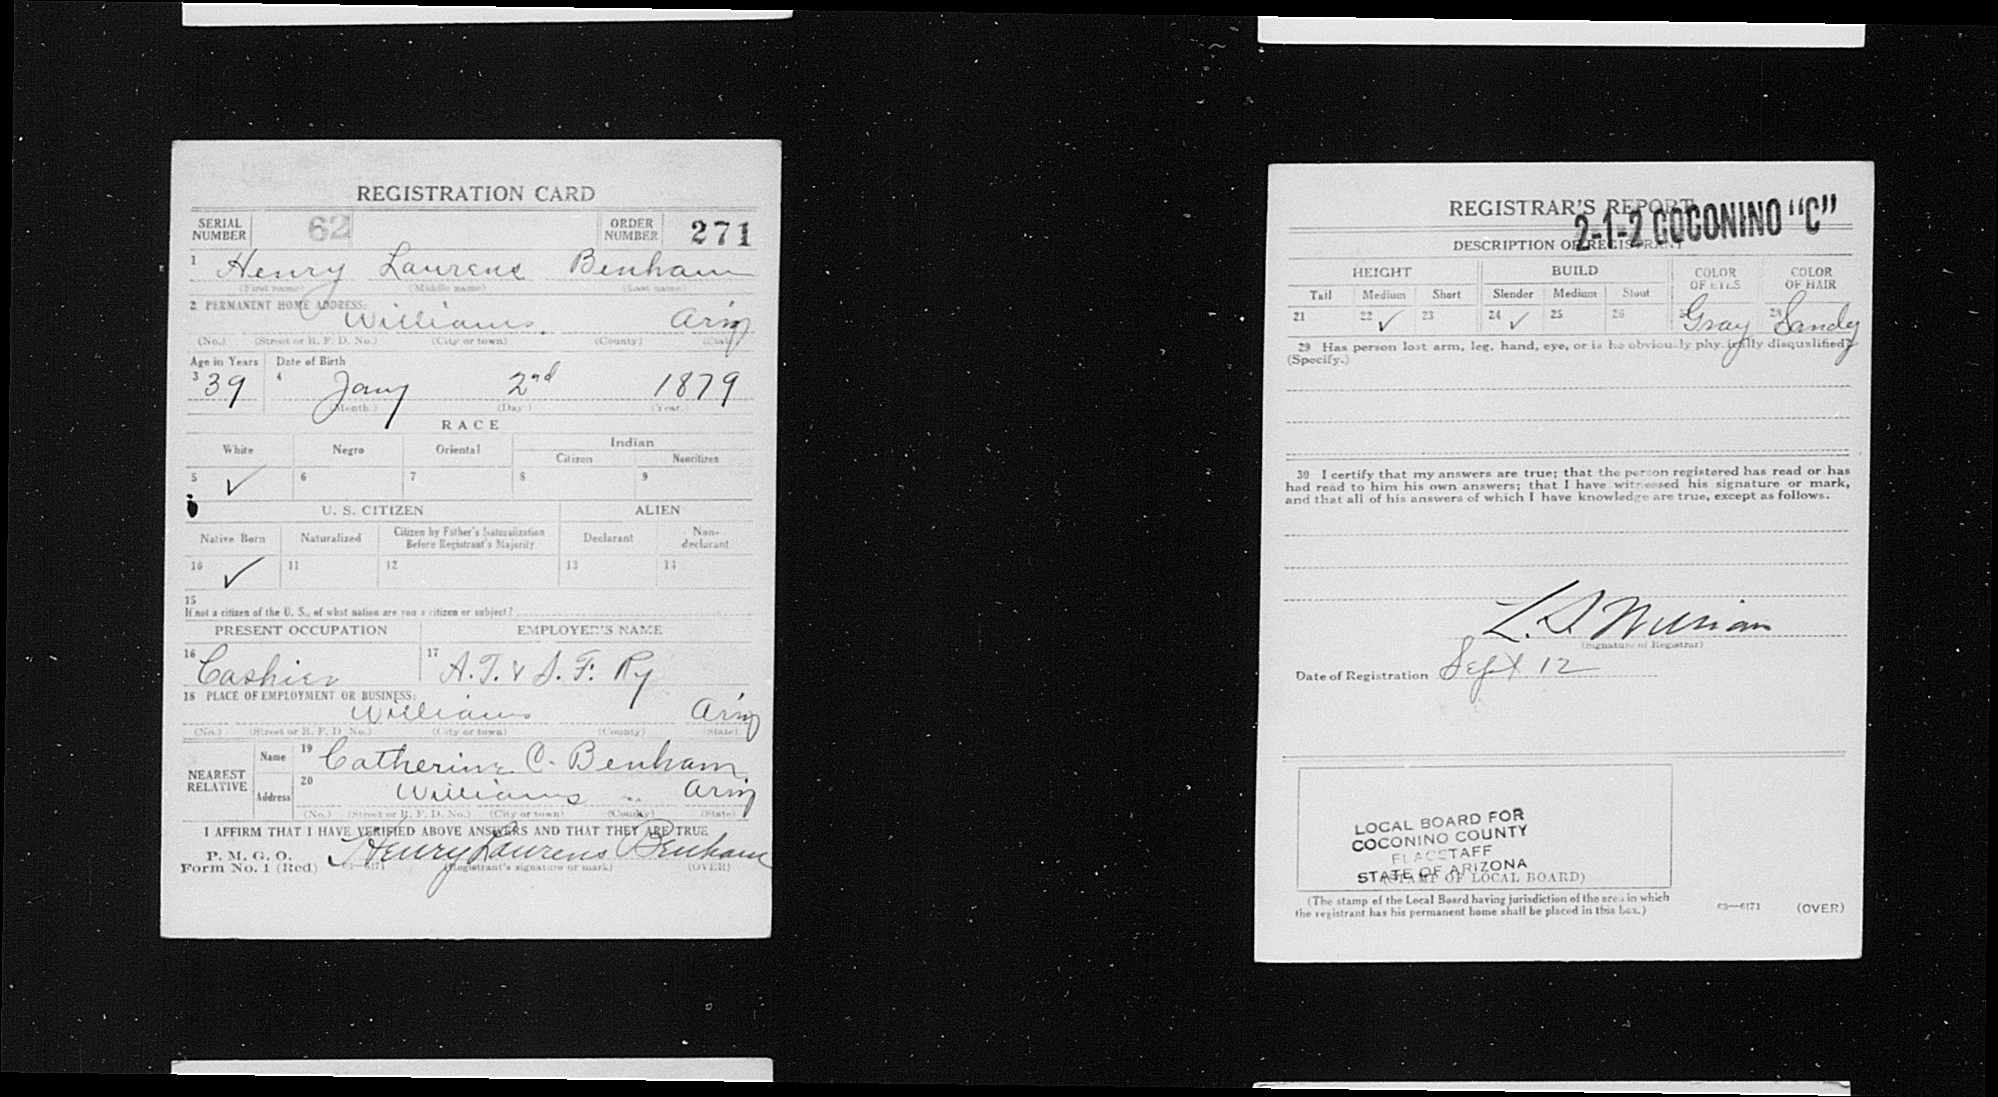 REGISTRATION CARD
SERIAL NUMBER 62 ORDER NUMBER 271
1 Henry Laurens Benham
(First name) (Middle name) (Last name)
2 PERMANENT HOME ADDRESS:
Williams. Ariz
(No.) (Street or R. F. D. No.) (City or town) (County) (State)
Age in Years Date of Birth
3 39 4 Jany 2nd 1879
(Month.) (Day.) (Year.)
RACE
White Negro Oriental Indian
Citizen Noncitizen
5 ✓ 6 7 8 9
U. S. CITIZEN ALIEN
Native Born Naturalized Citizen by Father's Naturalization Before Registrant's Majority Declarant Non-declarant
10 ✓ 11 12 13 14
15
If not a citizen of the U. S., of what nation are you a citizen or subject?
PRESENT OCCUPATION EMPLOYER'S NAME
16 Cashier 17 A. T. & S. F. Ry
18 PLACE OF EMPLOYMENT OR BUSINESS:
Williams Ariz
(No.) (Street or R. F. D. No.) (City or town) (County) (State)
NEAREST RELATIVE
Name 19 Catherine C. Benham
Address 20 Williams Ariz
(No.) (Street or R. F. D. No.) (City or town) (County) (State)
I AFFIRM THAT I HAVE VERIFIED ABOVE ANSWERS AND THAT THEY ARE TRUE
P. M. G. O.
Form No. 1 (Red) Henry Laurens Benham
(Registrant's signature or mark) (OVER)
REGISTRAR'S REPORT
2-1-2 COCONINO "C"
DESCRIPTION OF REGISTRANT
HEIGHT BUILD COLOR OF EYES COLOR OF HAIR
Tall Medium Short Slender Medium Stout
21 22 ✓ 23 24 ✓ 25 26 Gray 28 Sandy
29 Has person lost arm, leg, hand, eye, or is he obviously physically disqualified?
(Specify.)
30 I certify that my answers are true; that the person registered has read or has
had read to him his own answers; that I have witnessed his signature or mark,
and that all of his answers of which I have knowledge are true, except as follows.
L. S.
(Signature of Registrar)
Date of Registration Sept 12
LOCAL BOARD FOR
COCONINO COUNTY
FLAGSTAFF
STATE OF ARIZONA
(STAMP OF LOCAL BOARD)
(The stamp of the Local Board having jurisdiction of the area in which
the registrant has his permanent home shall be placed in this box.)
03—6171 (OVER)